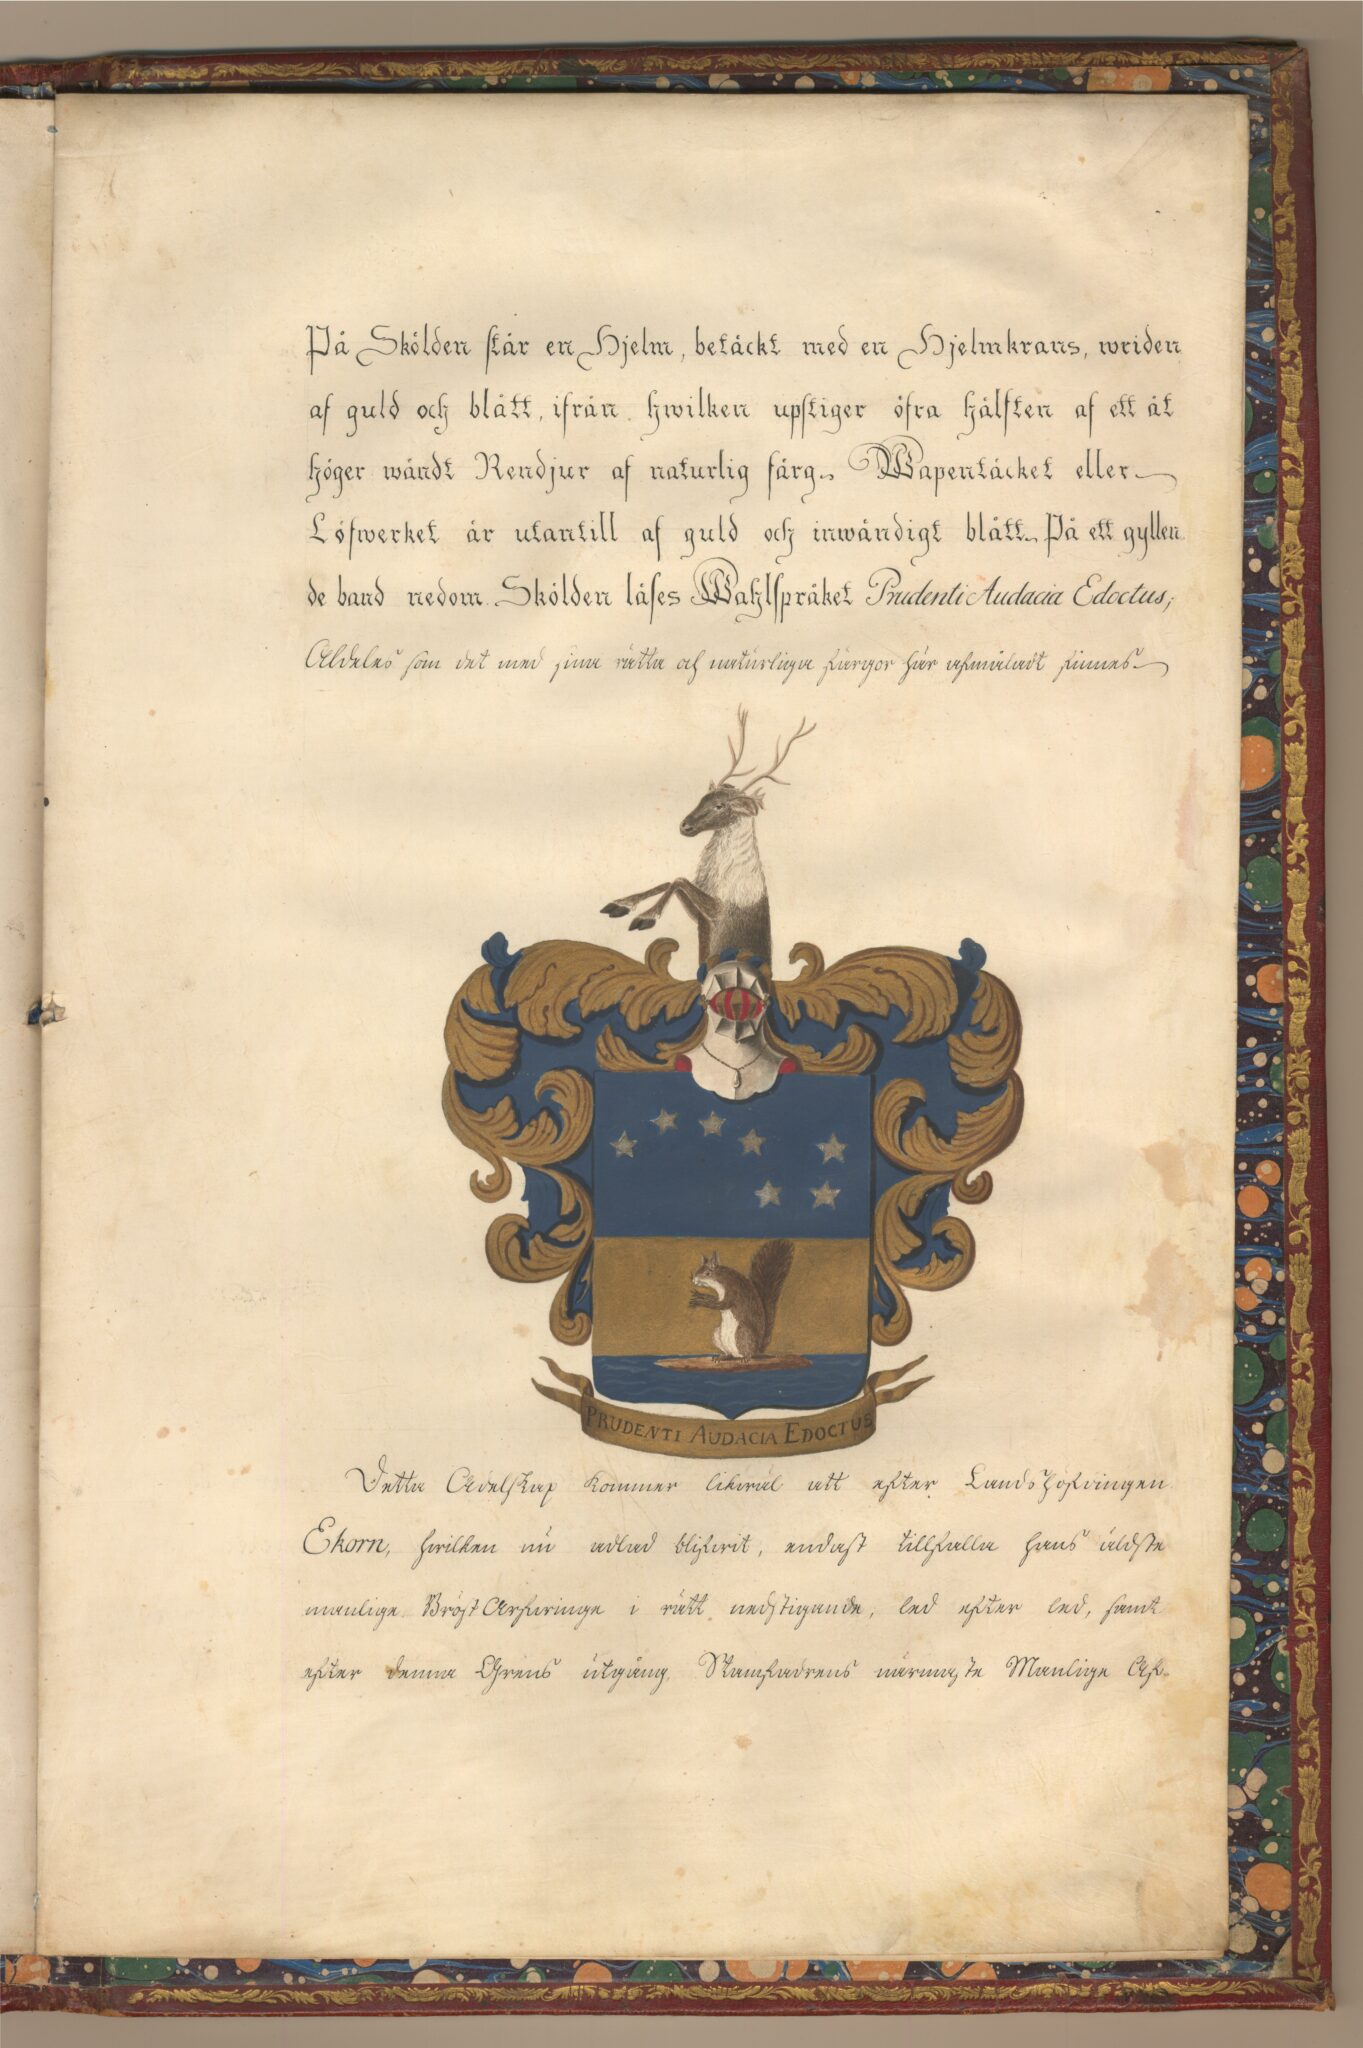 På Skölden står en Hjelm, betäckt med en Hjelmkrans, wriden
af guld och blått, ifrån hwilken upstiger öfra hälften af ett åt
höger wändt Rendjur af naturlig färg. Wapentäcket eller
Löfwerket är utantill af guld och inwändigt blått. På ett gyllen
de band nedom Skölden läses Wahlspråket Prudenti Audacia Edoctus;
Aldeles som det med sina rätta och naturliga färgor här afmåladt finnes.
PRUDENTI AUDACIA EDOCTUS
Detta Adelskap kommer likwäl att efter Landshöfdingen
Ekorn, hwilken nu adlad blifwit, endast tillfalla hans äldste
manlige Bröst Arfwinge i rätt nedstigande, led efter led, samt
efter denna Grens utgång, Stamfadrens närmaste Manlige Af-